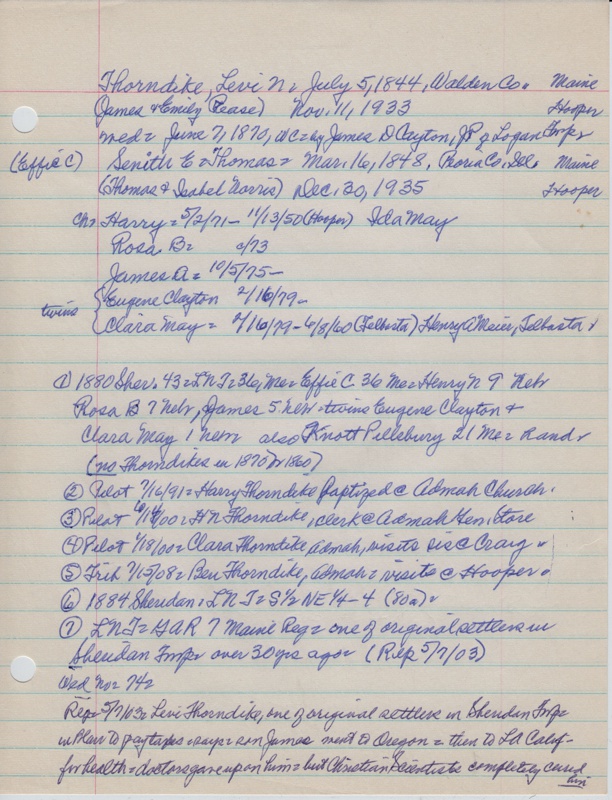 Thorndike, Levi N = July 5, 1844, Walden Co. Maine
(James & Emily Pease) Nov. 11, 1933 Hooper
wed = June 7, 1870, WC = by James D Clayton, JP of Logan Twp
(Effie C) Senith E = Thomas = Mar. 16, 1848, Peoria Co. Ill. Maine
(Thomas & Isabel Norris) Dec. 30, 1935 Hooper
ch = Harry = 5/2/71 - 11/13/50 (Hooper) Ida May
Rosa B = c/73
James A = 10/5/75 -
twins { Eugene Clayton 2/16/79 -
Clara May = 2/16/79 - 6/8/60 (Telbasta) Henry A Meier, Telbasta
① 1880 Sher. 43 = LNT = 36, Me = Effie C 36 Me = Henry N 9 Nebr
Rosa B 7 Nebr, James 5 Nebr = twins Eugene Clayton &
Clara May 1 Nebr also Knott Pillsbury 21 Me = Rand
(no Thorndikes in 1870 or 1860)
② Pilot 7/16/91 = Harry Thorndike baptized @ Admah Church.
③ Pilot 6/14/00 = HN Thorndike, clerk @ Admah Gen. Store
④ Pilot 1/18/00 = Clara Thorndike Admah, visits sis @ Craig
⑤ Trib 7/15/08 = Ben Thorndike, Admah = visits @ Hooper
⑥ 1884 Sheridan: LNT = S½ NE¼ - 4 (80a) =
⑦ LNT = GAR 7 Maine Reg = one of original settlers in
Sheridan Twp over 30 yrs ago = (Rep 5/7/03)
Wed No = 74 =
Rep = 5/7/03 = Levi Thorndike, one of original settlers in Sheridan Twp =
in Blair to pay taxes = says = son James went to Oregon = then to LA Calif -
for health = doctors gave up on him = but Christian Scientists completely cured
him